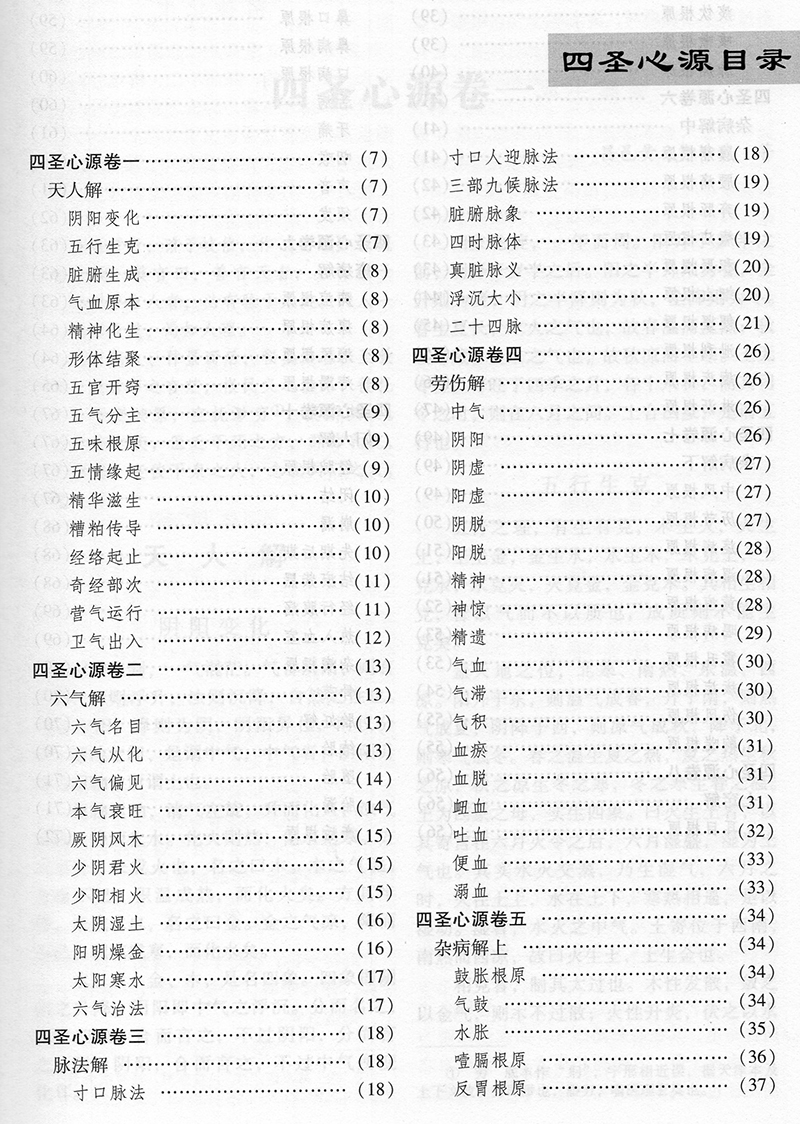 四圣心源目录
四圣心源卷一……(7)
天人解……(7)
阴阳变化……(7)
五行生克……(7)
脏腑生成……(8)
气血原本……(8)
精神化生……(8)
形体结聚……(8)
五官开窍……(8)
五气分主……(9)
五味根原……(9)
五情缘起……(9)
精华滋生……(10)
糟粕传导……(10)
经络起止……(10)
奇经部次……(11)
营气运行……(11)
卫气出入……(12)
四圣心源卷二……(13)
六气解……(13)
六气名目……(13)
六气从化……(13)
六气偏见……(14)
本气衰旺……(14)
厥阴风木……(15)
少阴君火……(15)
少阳相火……(15)
太阴湿土……(16)
阳明燥金……(16)
太阳寒水……(17)
六气治法……(17)
四圣心源卷三……(18)
脉法解……(18)
寸口脉法……(18)
寸口人迎脉法……(18)
三部九候脉法……(19)
脏腑脉象……(19)
四时脉体……(19)
真脏脉义……(20)
浮沉大小……(20)
二十四脉……(21)
四圣心源卷四……(26)
劳伤解……(26)
中气……(26)
阴阳……(26)
阴虚……(27)
阳虚……(27)
阴脱……(27)
阳脱……(28)
精神……(28)
神惊……(28)
精遗……(29)
气血……(30)
气滞……(30)
气积……(30)
血瘀……(31)
血脱……(31)
衄血……(31)
吐血……(32)
便血……(33)
溺血……(33)
四圣心源卷五……(34)
杂病解上……(34)
鼓胀根原……(34)
气鼓……(34)
水胀……(35)
噎膈根原……(36)
反胃根原……(37)